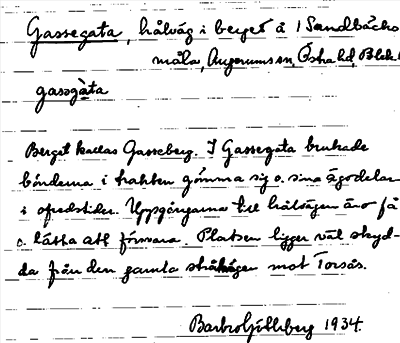 Gassegata, hålväg i berget å 1 Sandbäcks-
måla, Augerums sn, Östra hd, Blek.
gasəgàta
Berget kallas Gasseberg. I Gassegata brukade
bönderna i trakten gömma sig o. sina ägodelar
i ofredstider. Uppgångarna till hålvägen äro få
o. lätta att försvara. Platsen ligger väl skyd-
da från den gamla stråkvägen mot Torsås.
Barbro Gyllberg 1934.